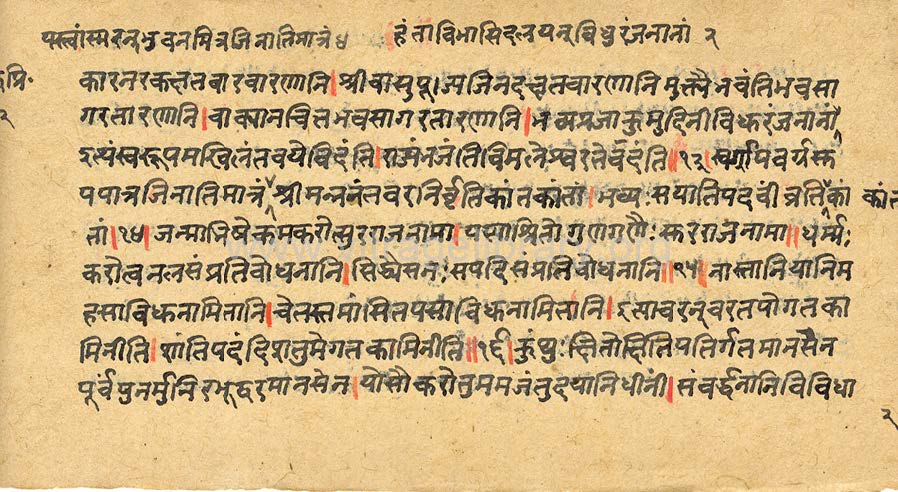 पस्त्वांस्मरन्भुवनमित्रजिनातिमात्रं४ हंताविभासिदलयन्विधुरंजनानां २
कारनरकहलवारवारणानि।श्रीवासुपूज्यजिनदत्तवारणानि मुक्त्यैभवंतिभवसा
गरतारणानि।वाक्यानचित्तभवसागरतारणानि।भव्यप्रजाकुमुदिनीविकरंजनानां
रूपंस्वरूपमखिलंतवयेविदंति।राज्यंभजंतिविमलेश्वरतेवदंति॥१३।स्वर्गापवर्गस्त
पपात्रजिनातिमात्रं श्रीमन्ननंतवरनिर्वृतिकांतकांता।भव्यः सयातिपदवीं व्रतिकां कांत
तां।१४।जन्माभिषेकमकरोत्सुरराजनामा।यस्याश्रितोगुणगणैः स्तरराजनामा॥धर्म्मः
करोत्वनलसंप्रतिबोधनानि।सिद्ध्यैसनः सपदिसंप्रतिबोधनानि॥१५।नास्तानियानिम
हसाविधनामितानि।चेतस्तमांसितपसाविधनामितानि।हत्वावरन्वरतपोगतका
मिनीति।शांतिपदंदिशतुमेगतकामिनीति॥१६।कुंथुः क्षितौक्षितिपतिर्गतमानसेन
पूर्वंपुनर्मुनिरभूद्धतमानसेन।योसौकरोतुममजंतुदयानिधीनां।संवर्द्धनानिविविधा
२